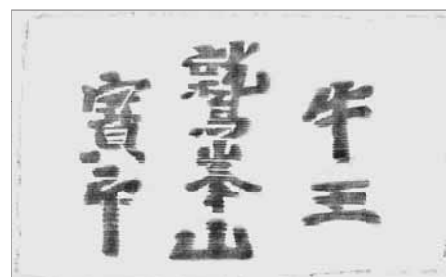 牛王
鷲峯山
寶印